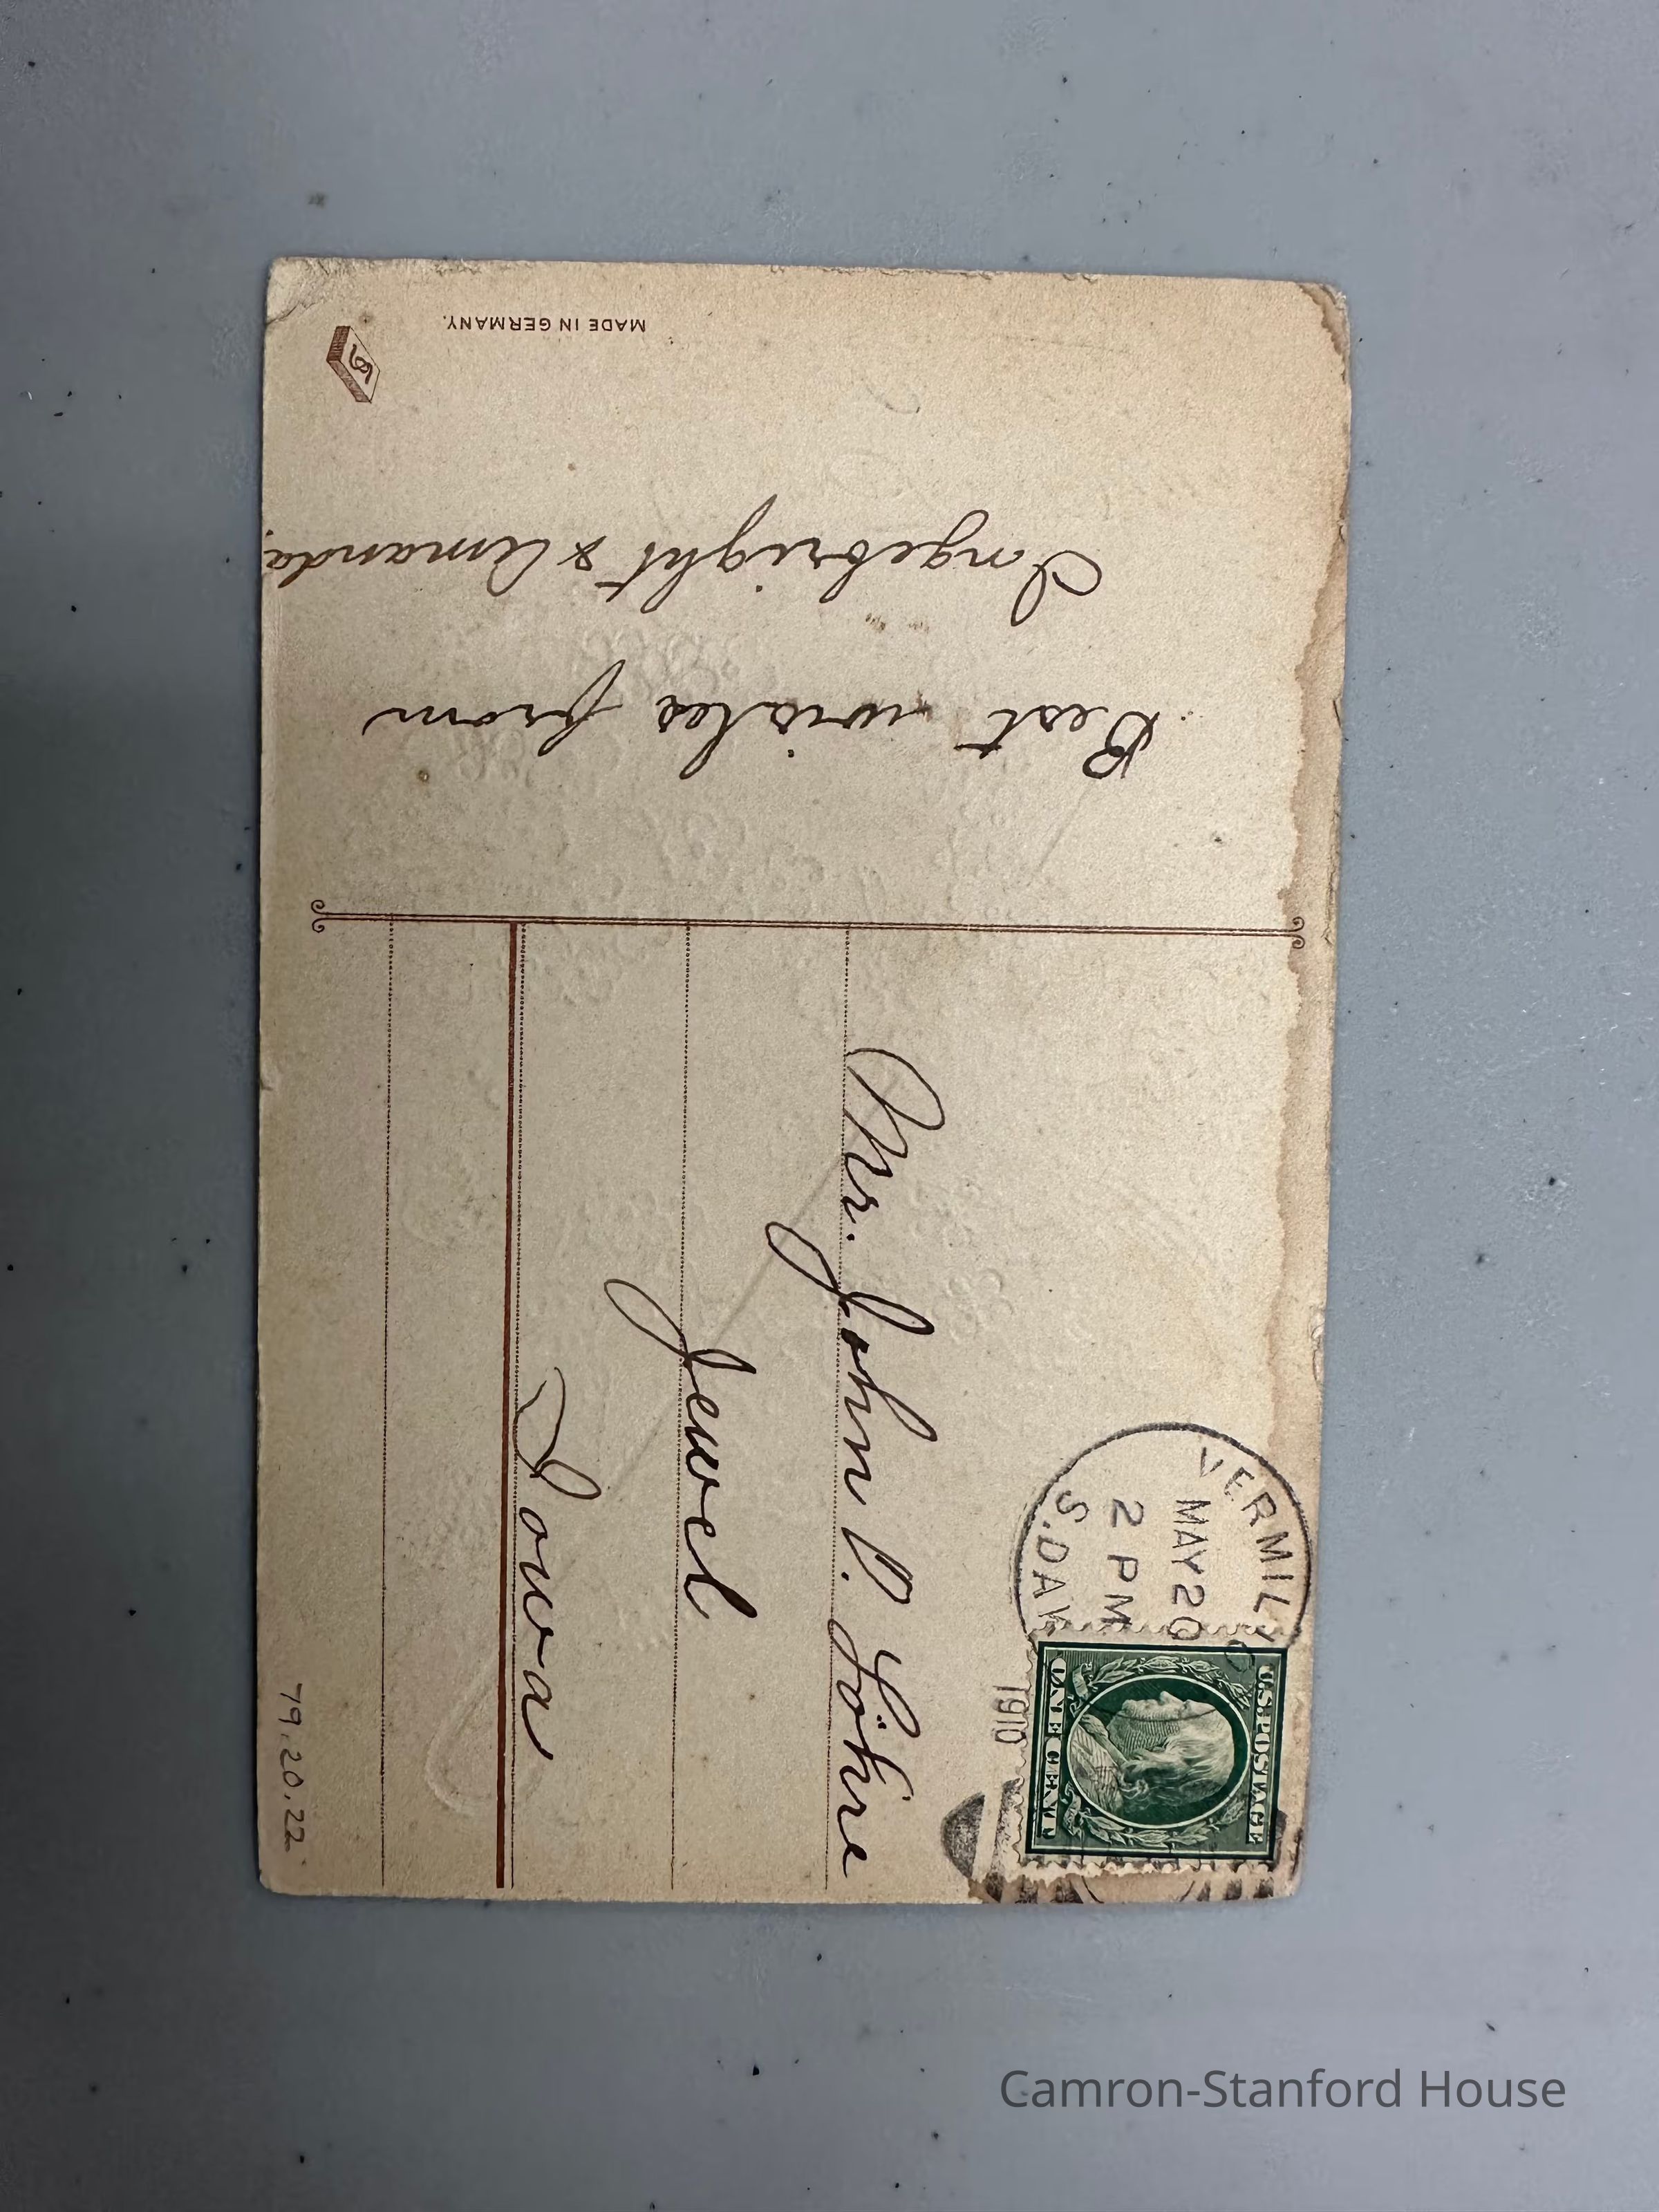 MADE IN GERMANY.
Best wishes from
Ingebright & Amanda.
VERMIL
MAY 20
2 PM
S.DAK
1910
U.S. POSTAGE
ONE CENT
Mr. John P. Göhre
Jewel
Iowa
79.20.22
Camron-Stanford House